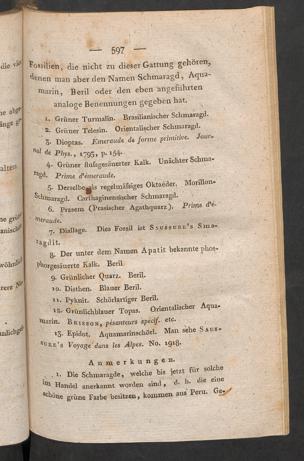 — 597 —
Fossilien, die nicht zu dieser Gattung gehören,
denen man aber den Namen Schmaragd, Aqua-
marin, Beril oder den eben angeführten
analoge Benennungen gegeben hat.
1. Grüner Turmalin. Brasilianischer Schmaragd.
2. Grüner Telesin. Orientalischer Schmaragd.
3. Dioptas. Emeraude de forme primitive. Jour-
nal de Phys., 1793, p. 154.
4. Grüner flußgesäuerter Kalk. Unächter Schma-
ragd. Prime d'émeraude.
5. Derselbe als regelmäßiges Oktaëder. Morillon-
Schmaragd. Carthaginensischer Schmaragd.
6. Prasem (Prasischer Agathquarz). Prime d'é-
meraude.
7. Diallage. Dies Fossil ist SAUSSURE's Sma-
ragdit.
8. Der unter dem Namen Apatit bekannte phos-
phorgesäuerte Kalk. Beril.
9. Grünlicher Quarz. Beril.
10. Disthen. Blauer Beril.
11. Pyknit. Schörlartiger Beril.
12. Grünlichblauer Topas. Orientalischer Aqua-
marin. BRISSON, pésanteurs spécif. etc.
13. Epidot. Aquamarinschörl. Man sehe SAUS-
SURE's Voyage dans les Alpes. No. 1918.
Anmerkungen.
1. Die Schmaragde, welche bis jetzt für solche
im Handel anerkannt worden sind, d. h. die eine
schöne grüne Farbe besitzen, kommen aus Peru. Ge-